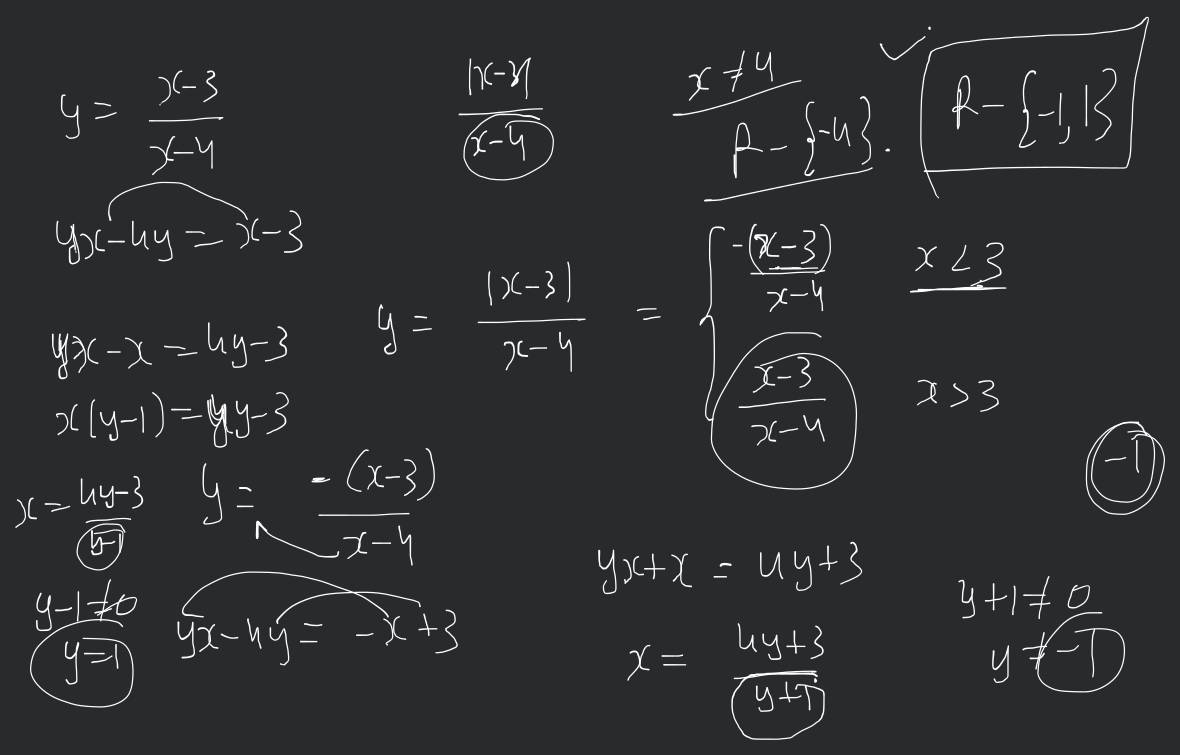 y = x-3 / x-4
yx-4y = x-3
yx-x = 4y-3
x(y-1) = 4y-3
x = 4y-3 / y-1
y-1≠0
y=1
|x-3| / x-4
x≠4
R-{-4}.
R-{-1,1}
y = |x-3| / x-4 = { -(x-3) / x-4 x<3
x-3 / x-4 x>3
-1
y = -(x-3) / x-4
yx-4y = -x+3
yx+x = 4y+3
x = 4y+3 / y+1
y+1≠0
y≠-1